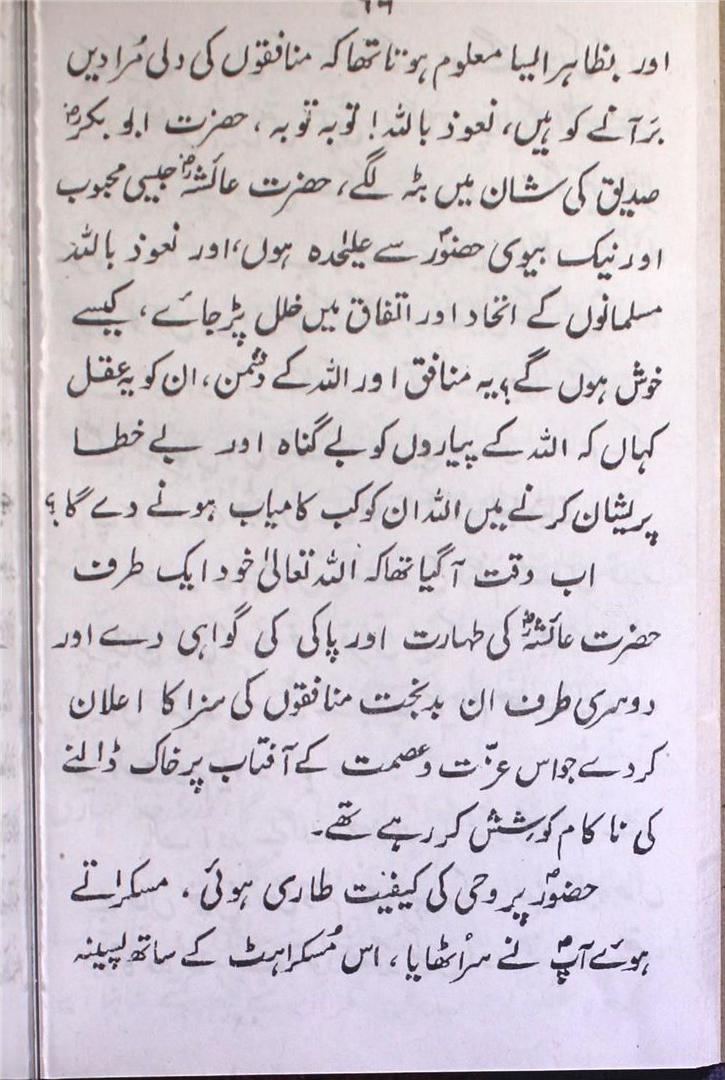 اور بظاہر ایسا معلوم ہوتا تھا کہ منافقوں کی دلی مُرادیں
بَر آنے کو ہیں، نعوذ باللہ! توبہ توبہ، حضرت ابو بکرؓ
صدیق کی شان میں بٹہ لگے، حضرت عائشہؓ جیسی محبوب
اور نیک بیوی حضورؐ سے علیٰحدہ ہوں، اور نعوذ باللہ
مسلمانوں کے اتحاد اور اتفاق میں خلل پڑ جائے، کیسے
خوش ہوں گے؟ یہ منافق اور اللہ کے دشمن، ان کو یہ عقل
کہاں کہ اللہ کے پیاروں کو بے گناہ اور بے خطا
پریشان کرنے میں اللہ ان کو کب کامیاب ہونے دے گا؟
اب وقت آگیا تھا کہ اللہ تعالیٰ خود ایک طرف
حضرت عائشہؓ کی طہارت اور پاکی کی گواہی دے اور
دوسری طرف ان بدبخت منافقوں کی سزا کا اعلان
کردے جو اس عزّت و عصمت کے آفتاب پر خاک ڈالنے
کی ناکام کوشِش کر رہے تھے۔
حضورؐ پر وحی کی کیفیت طاری ہوئی، مسکراتے
ہوئے آپؐ نے سر اُٹھایا، اس مُسکراہٹ کے ساتھ پسینہ